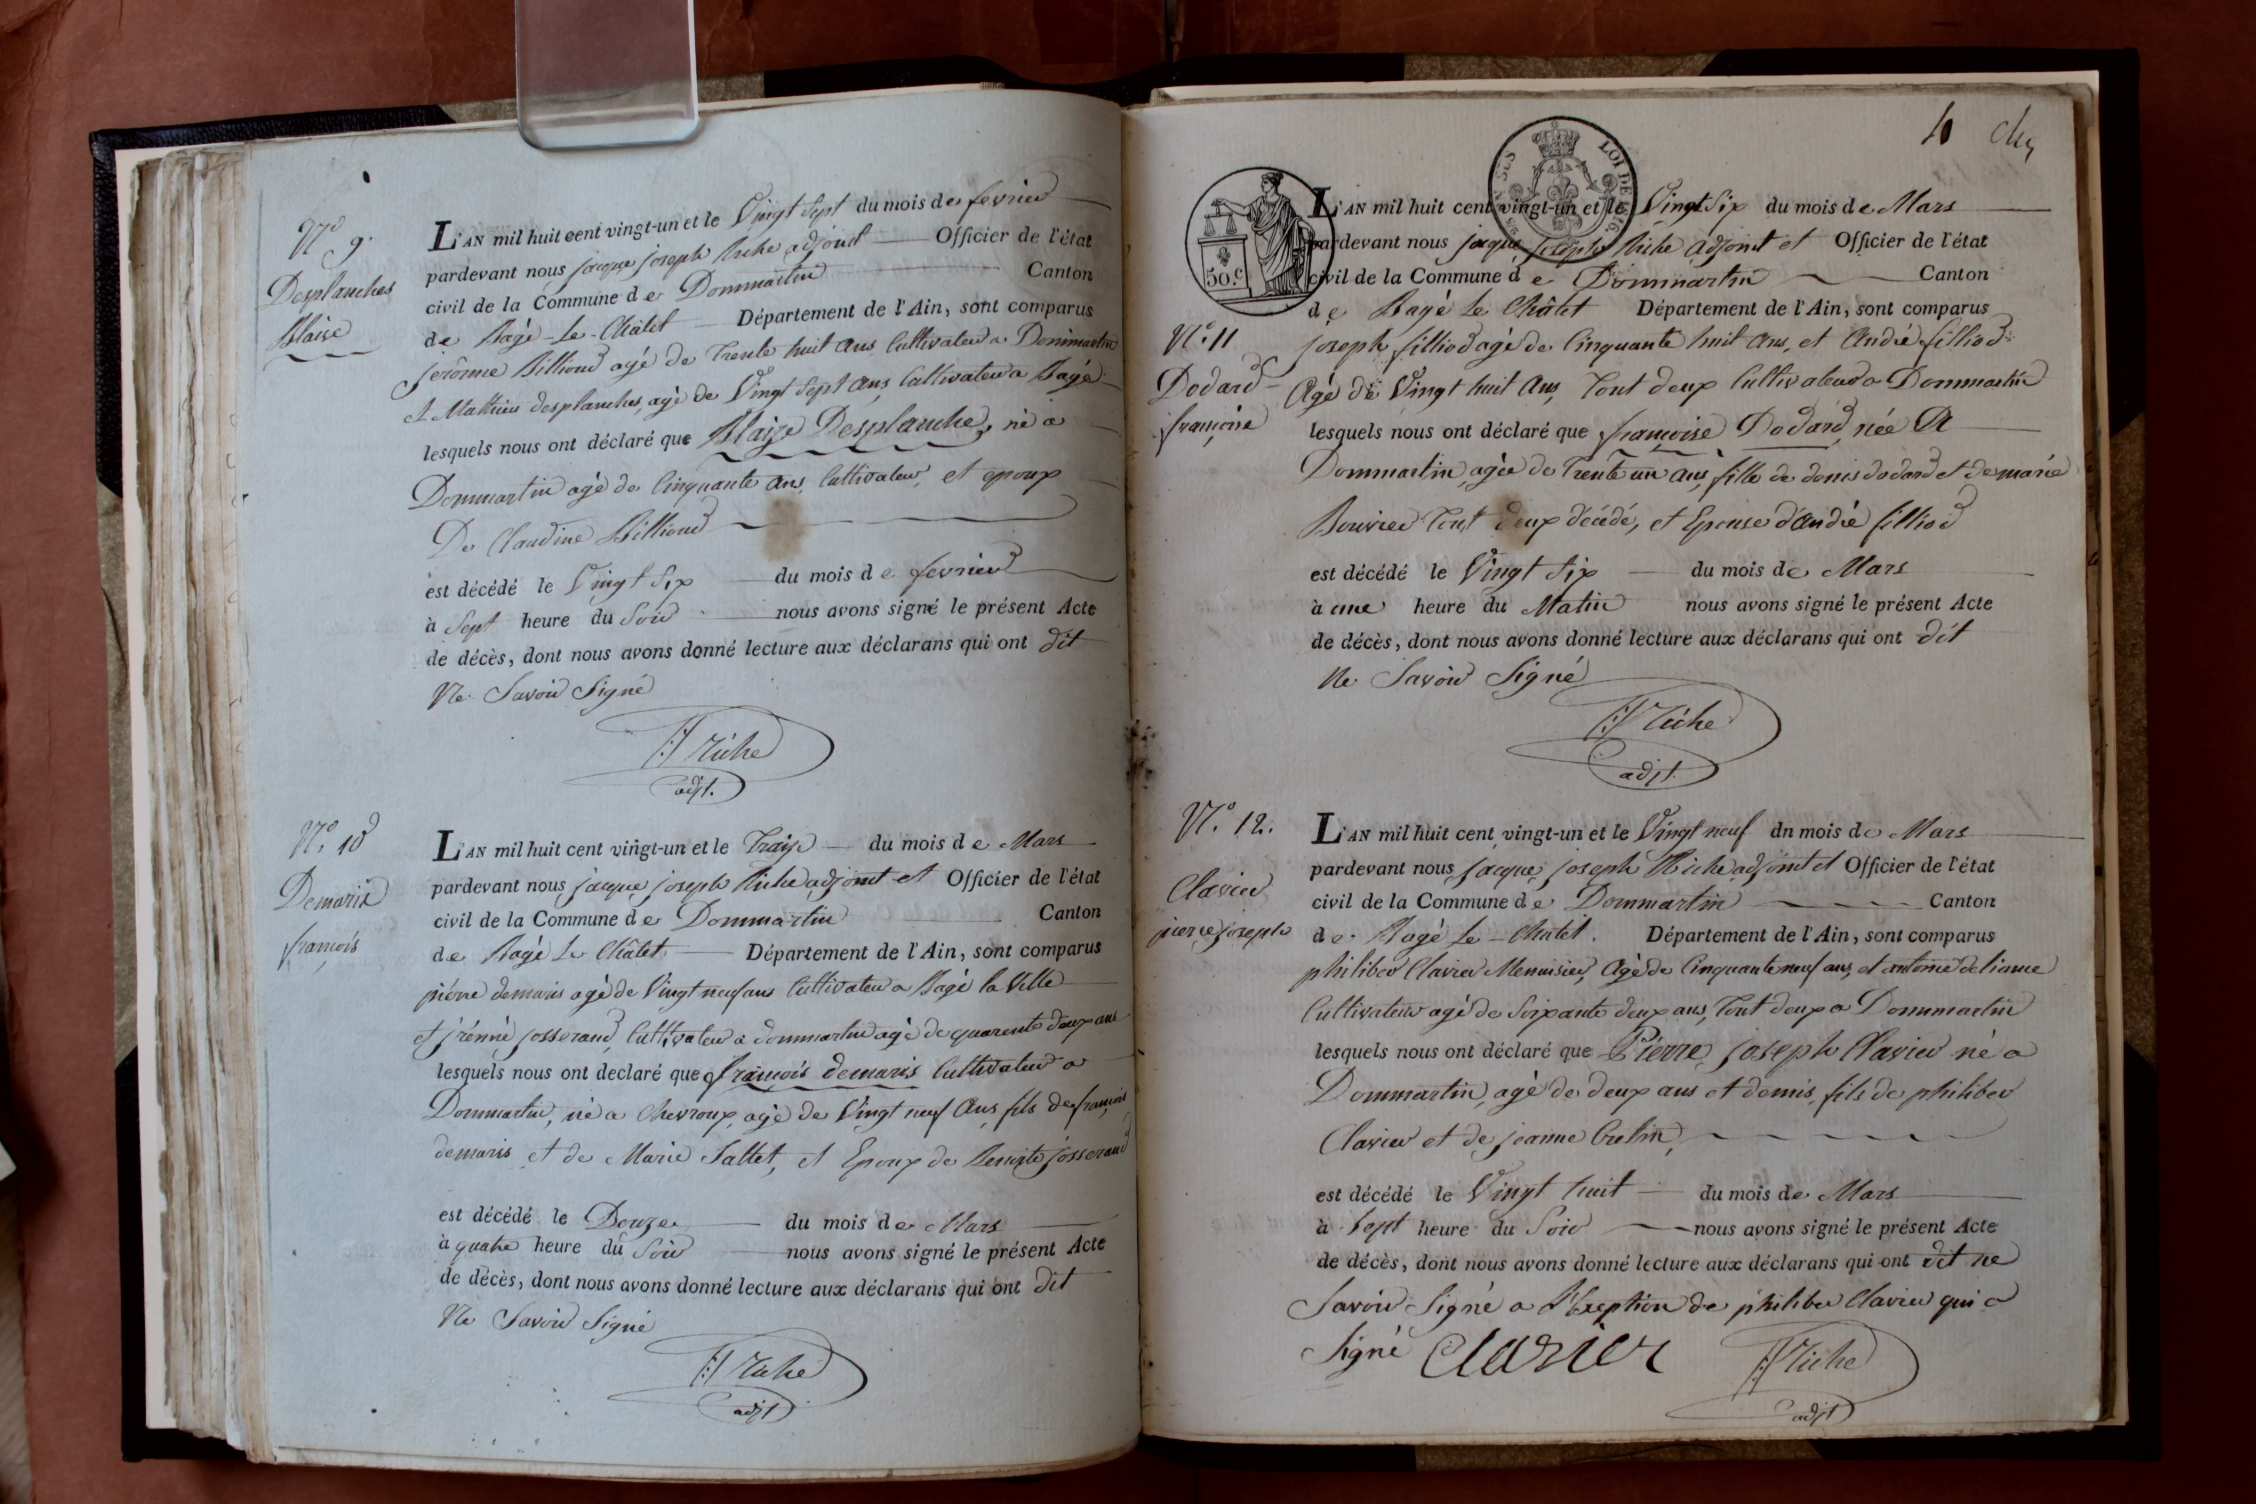 N.° 9.
Desplanches
Blaise
L'AN mil huit cent vingt-un et le Vingt Sept du mois de fevrier
pardevant nous jacque joseph Riche adjoint Officier de l'état
civil de la Commune de Dommartin Canton
de Bagé-Le-Châtel Département de l'Ain, sont comparus
jerôme Billioud agé de Trente huit ans Cultivateur a Dommartin
et Mathieu desplanches, agé de Vingt Sept ans, Cultivateur a Bagé
lesquels nous ont déclaré que Blaize Desplanche, né a
Dommartin agé de Cinquante ans, Cultivateur, et epoux
De Claudine Billioud
est décédé le Vingt Six du mois de fevrier
à Sept heure du Soir nous avons signé le présent Acte
de décès, dont nous avons donné lecture aux déclarans qui ont dit
Ne Savoir Signé
Riche
adjt.
N.° 10
Demaris
françois
L'AN mil huit cent vingt-un et le Traize du mois de Mars
pardevant nous jacque joseph Riche adjoint et Officier de l'état
civil de la Commune de Dommartin Canton
de Bagé Le Châtel Département de l'Ain, sont comparus
pierre demaris agé de Vingt neuf ans Cultivateur a Bagé la Ville
et josserand, Cultivateur a dommartin agé de quarente deux ans
lesquels nous ont declaré que françois demaris Cultivateur a
Dommartin, né a Chevroux, agé de Vingt neuf Ans, fils de françois
demaris et de Marie Tallet, et Epoux de Benoite josserand
est décédé le Douze du mois de Mars
à quatre heure du Soir nous avons signé le présent Acte
de décès, dont nous avons donné lecture aux déclarans qui ont dit
Ne Savoir Signé
Riche
adjt
LOI DE 1816.
50.c
N.° 11
Dodard
françoise
L'AN mil huit cent vingt-un et le Vingt Six du mois de Mars
pardevant nous jacque joseph Riche adjoint et Officier de l'état
civil de la Commune de Dommartin Canton
de Bagé Le Châtel Département de l'Ain, sont comparus
joseph filliod agé de Cinquante huit ans, et André filliod
Agé de Vingt huit Ans, Tout deux Cultivateurs a Dommartin
lesquels nous ont déclaré que françoise Dodard, née A
Dommartin, agée de Trente un ans, fille de denis dodard et de marie
Bouvier Tout deux décédé, et Epouse d'André filliod
est décédé le Vingt Six du mois de Mars
à une heure du Matin nous avons signé le présent Acte
de décès, dont nous avons donné lecture aux déclarans qui ont dit
Ne Savoir Signé
Riche
adjt.
N.° 12.
Clavier
pierre joseph
L'AN mil huit cent vingt-un et le Vingt neuf dn mois de Mars
pardevant nous jacque joseph Riche adjoint et Officier de l'état
civil de la Commune de Dommartin Canton
de Bagé Le-Châtel. Département de l'Ain, sont comparus
philiber Clavier Menuisier, Agé de Cinquante neuf ans, et antoine
Cultivateur agé de Soixante deux ans, Tout deux a Dommartin
lesquels nous ont déclaré que Pierre joseph Clavier né a
Dommartin, agé de deux ans et demis, fils de philiber
Clavier et de jeanne Cretin,
est décédé le Vingt huit du mois de Mars
à Sept heure du Soir nous avons signé le présent Acte
de décès, dont nous avons donné lecture aux déclarans qui ont dit ne
Savoir Signé a L'Exeption de philiber Clavier qui a
Signé Clavier Riche
adjt